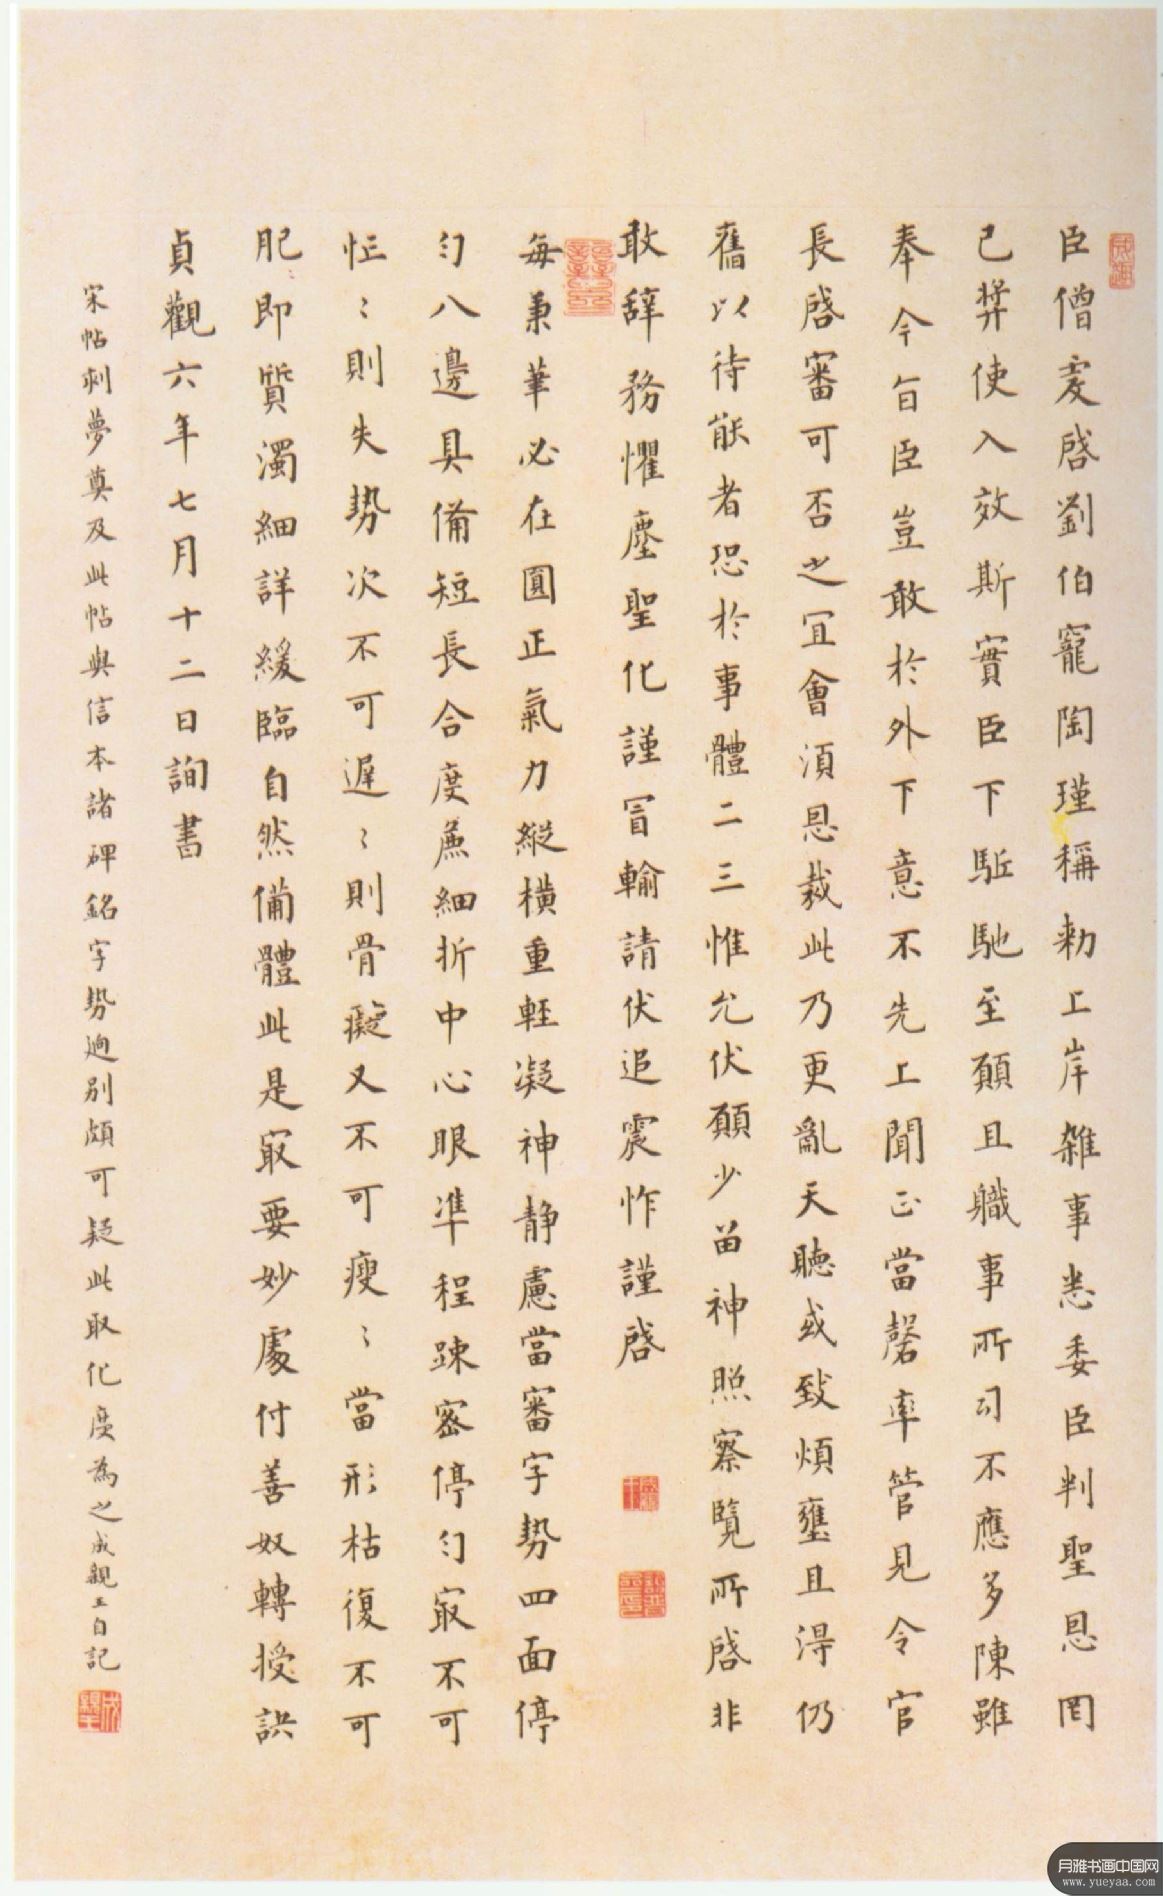 臣僧虔啓劉伯寵陶瑾稱勑上岸雜事悉委臣判聖恩罔
已弊使入效斯實臣下駈馳至願且軄事所司不應多陳雖
奉今旨臣豈敢於外下意不先上聞正當罄率管見令官
長啓審可否之冝會湏恩裁此乃更亂天聽或致煩壅且淂仍
舊以待能者恐於事體二三惟允伏願少留神照察覽所啓非
敢辞務懼塵聖化謹冒輸請伏追震怍謹啓
每秉筆必在圓正氣力縱橫重輕凝神靜慮當審字勢四面停
匀八邊具備短長合度麄細折中心眼準程踈密停匀㝡不可
忙〻則失勢次不可遲〻則骨癡又不可瘦〻當形枯復不可
肥〻即質濁細詳緩臨自然備體此是㝡要妙處付善奴轉授訣
貞觀六年七月十二日詢書
宋帖刺夢奠及此帖與信本諸碑銘字勢逈別頗可疑此取化度為之成親王自記
月雅书画中国网
www.yueyaa.com